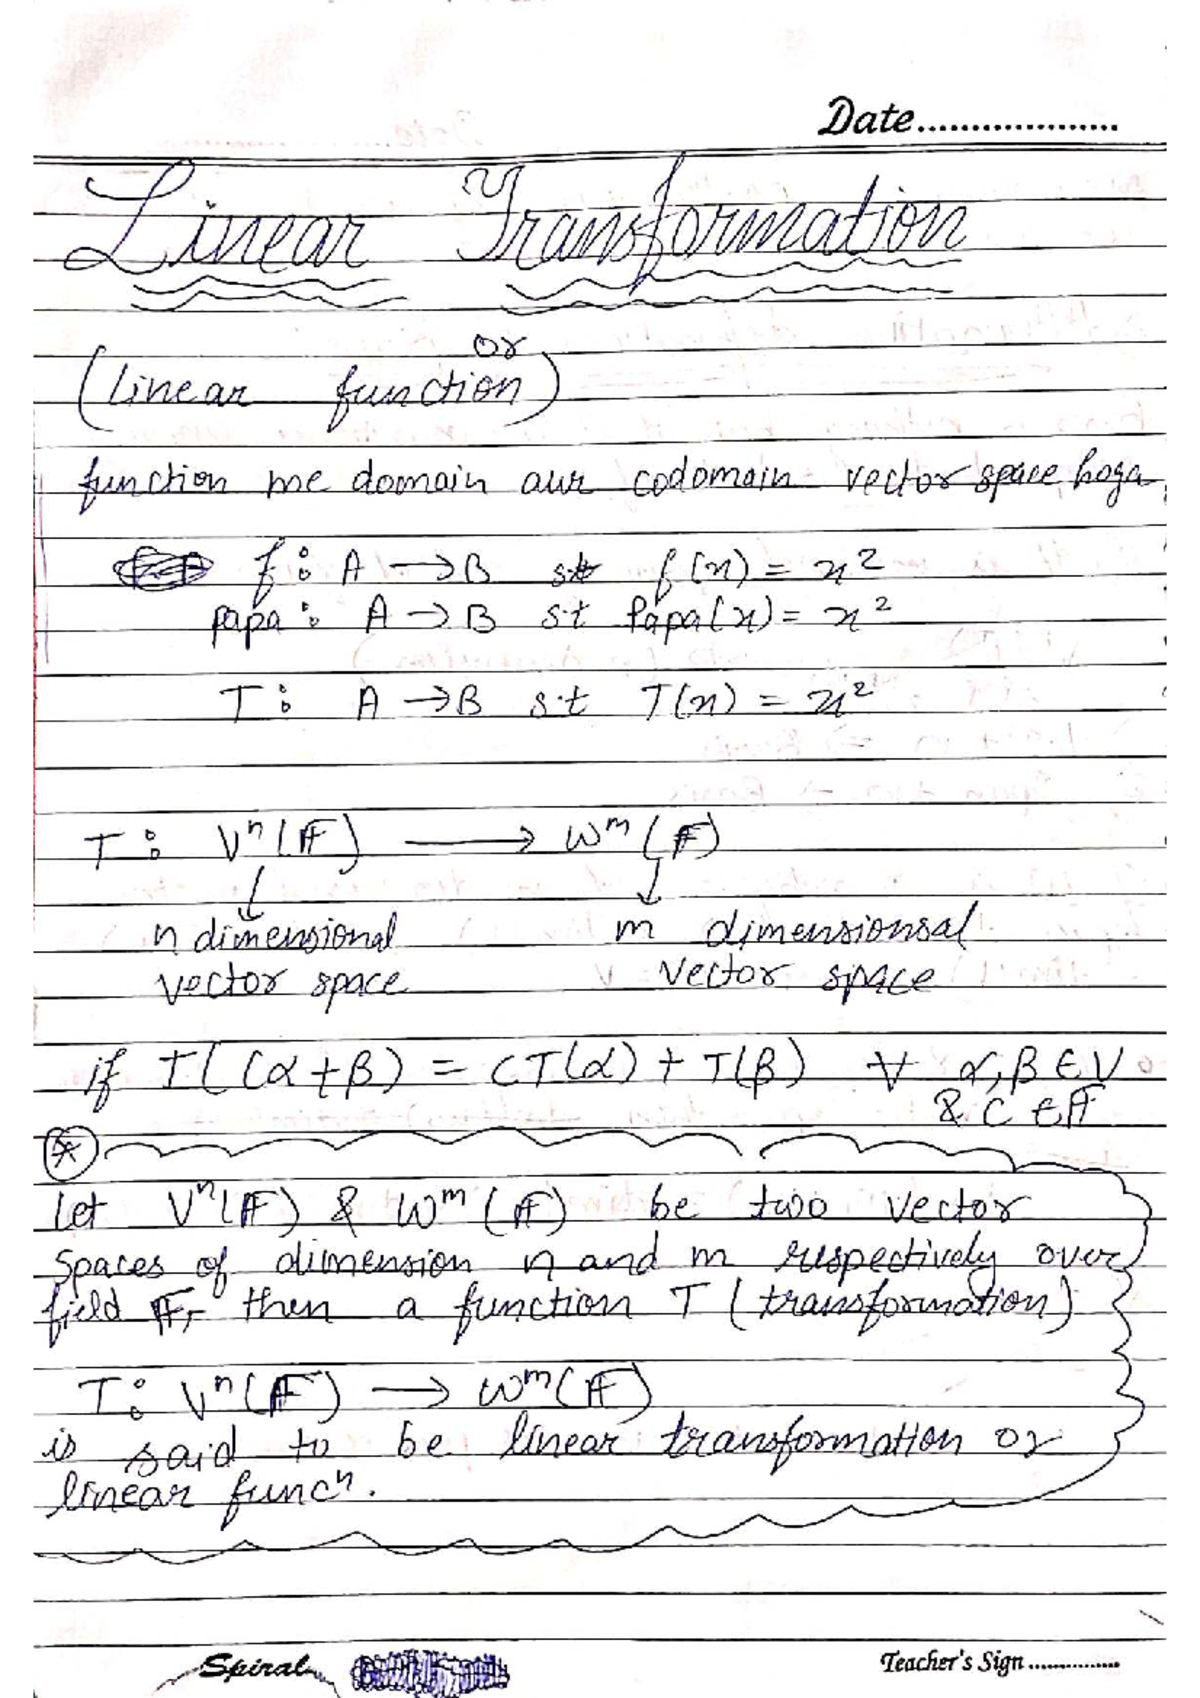 Date....................
Linear Transformation
or
(linear function)
function me domain aur codomain vector space hoga
f: A → B st f(x) = x²
papa: A → B s.t Papa(x) = x²
T: A → B s.t T(x) = x²
T: Vⁿ(𝔽) ⟶ Wᵐ(𝔽)
↓ ↓
n dimensional m dimensionsal
vector space vector space
if T(cα+β) = cT(α) + T(β) ∀ α,β ∈ V
& C ∈ 𝔽
Let Vⁿ(𝔽) & Wᵐ(𝔽) be two vector
spaces of dimension n and m respectively over
field 𝔽, then a function T (transformation)
T: Vⁿ(𝔽) ⟶ Wᵐ(𝔽)
is said to be linear transformation or
linear funcⁿ.
Spiral Teacher's Sign ..............